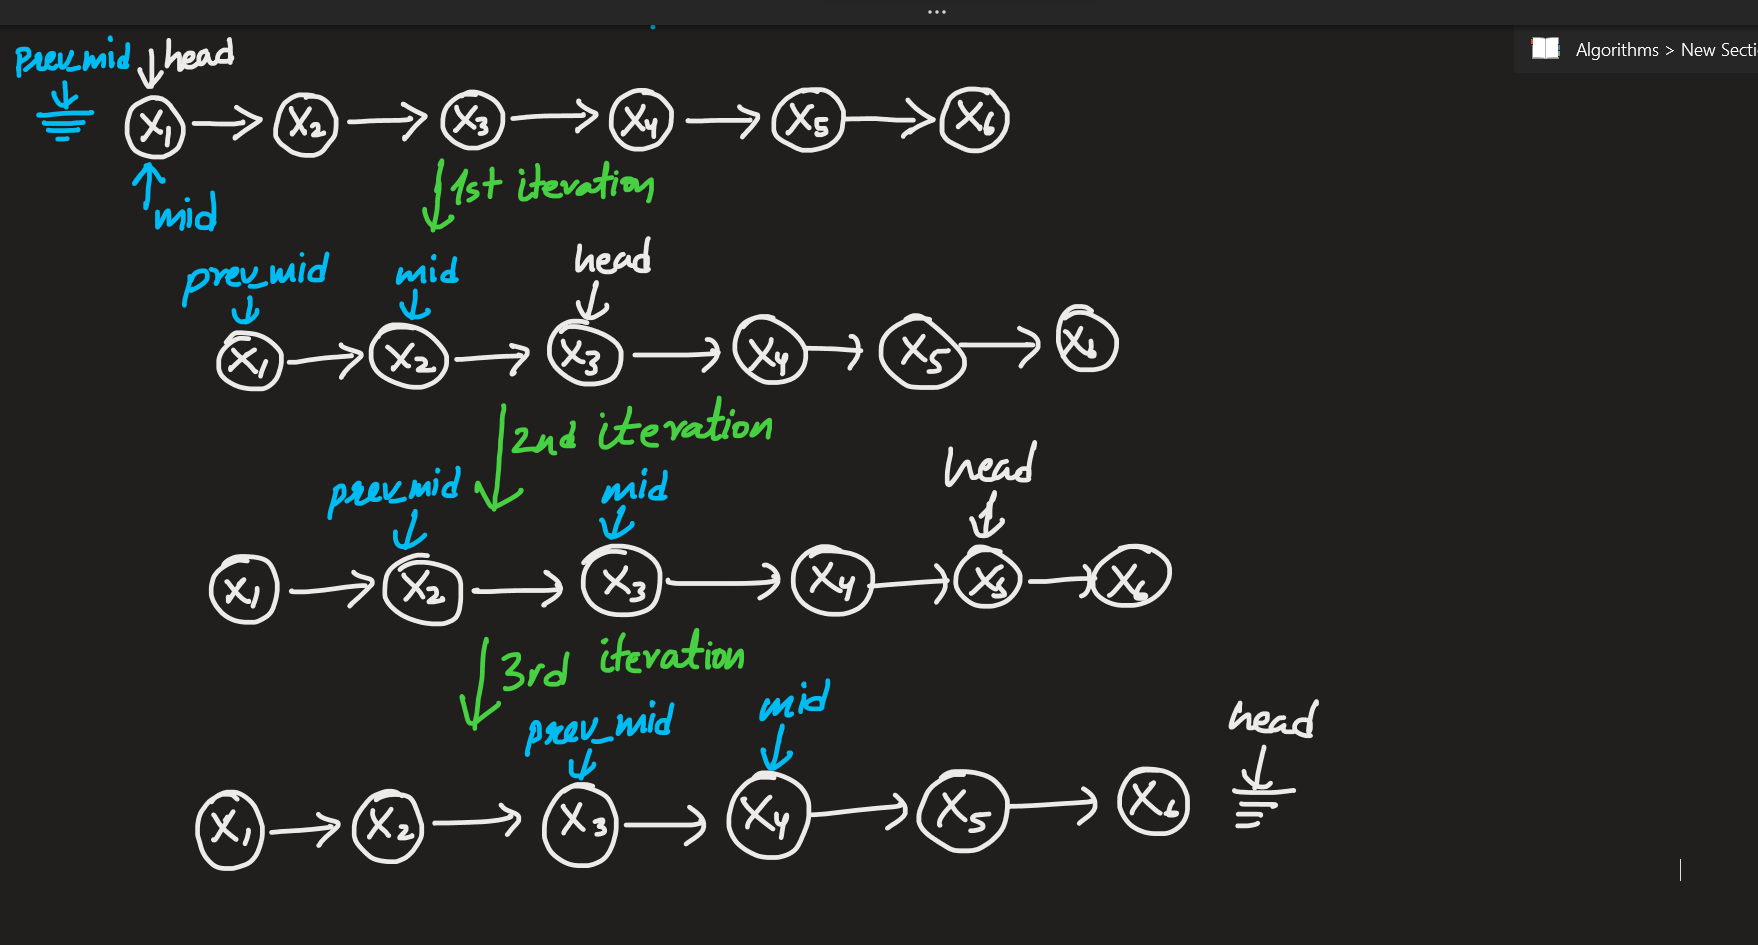 ...
Algorithms > New Secti
prev_mid head
X1 X2 X3 X4 X5 X6
mid
1st iteration
prev_mid mid head
X1 X2 X3 X4 X5 X6
2nd iteration
prev_mid mid head
X1 X2 X3 X4 X5 X6
3rd iteration
prev_mid mid head
X1 X2 X3 X4 X5 X6